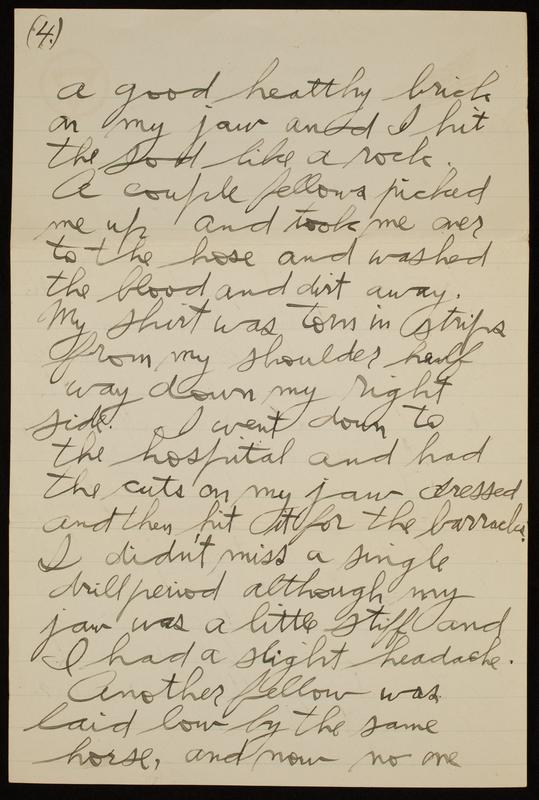 (4.)
a good healthy brick
on my jaw and I hit
the sod like a rock.
A couple fellows picked
me up and took me over
to the hose and washed
the blood and dirt away.
My shirt was torn in strips
from my shoulder half
way down my right
side. I went down to
the hospital and had
the cuts on my jaw dressed
and then hit it for the barracks.
I didn't miss a single
drill period although my
jaw was a little stiff and
I had a slight headache.
Another fellow was
laid low by the same
horse, and now no one